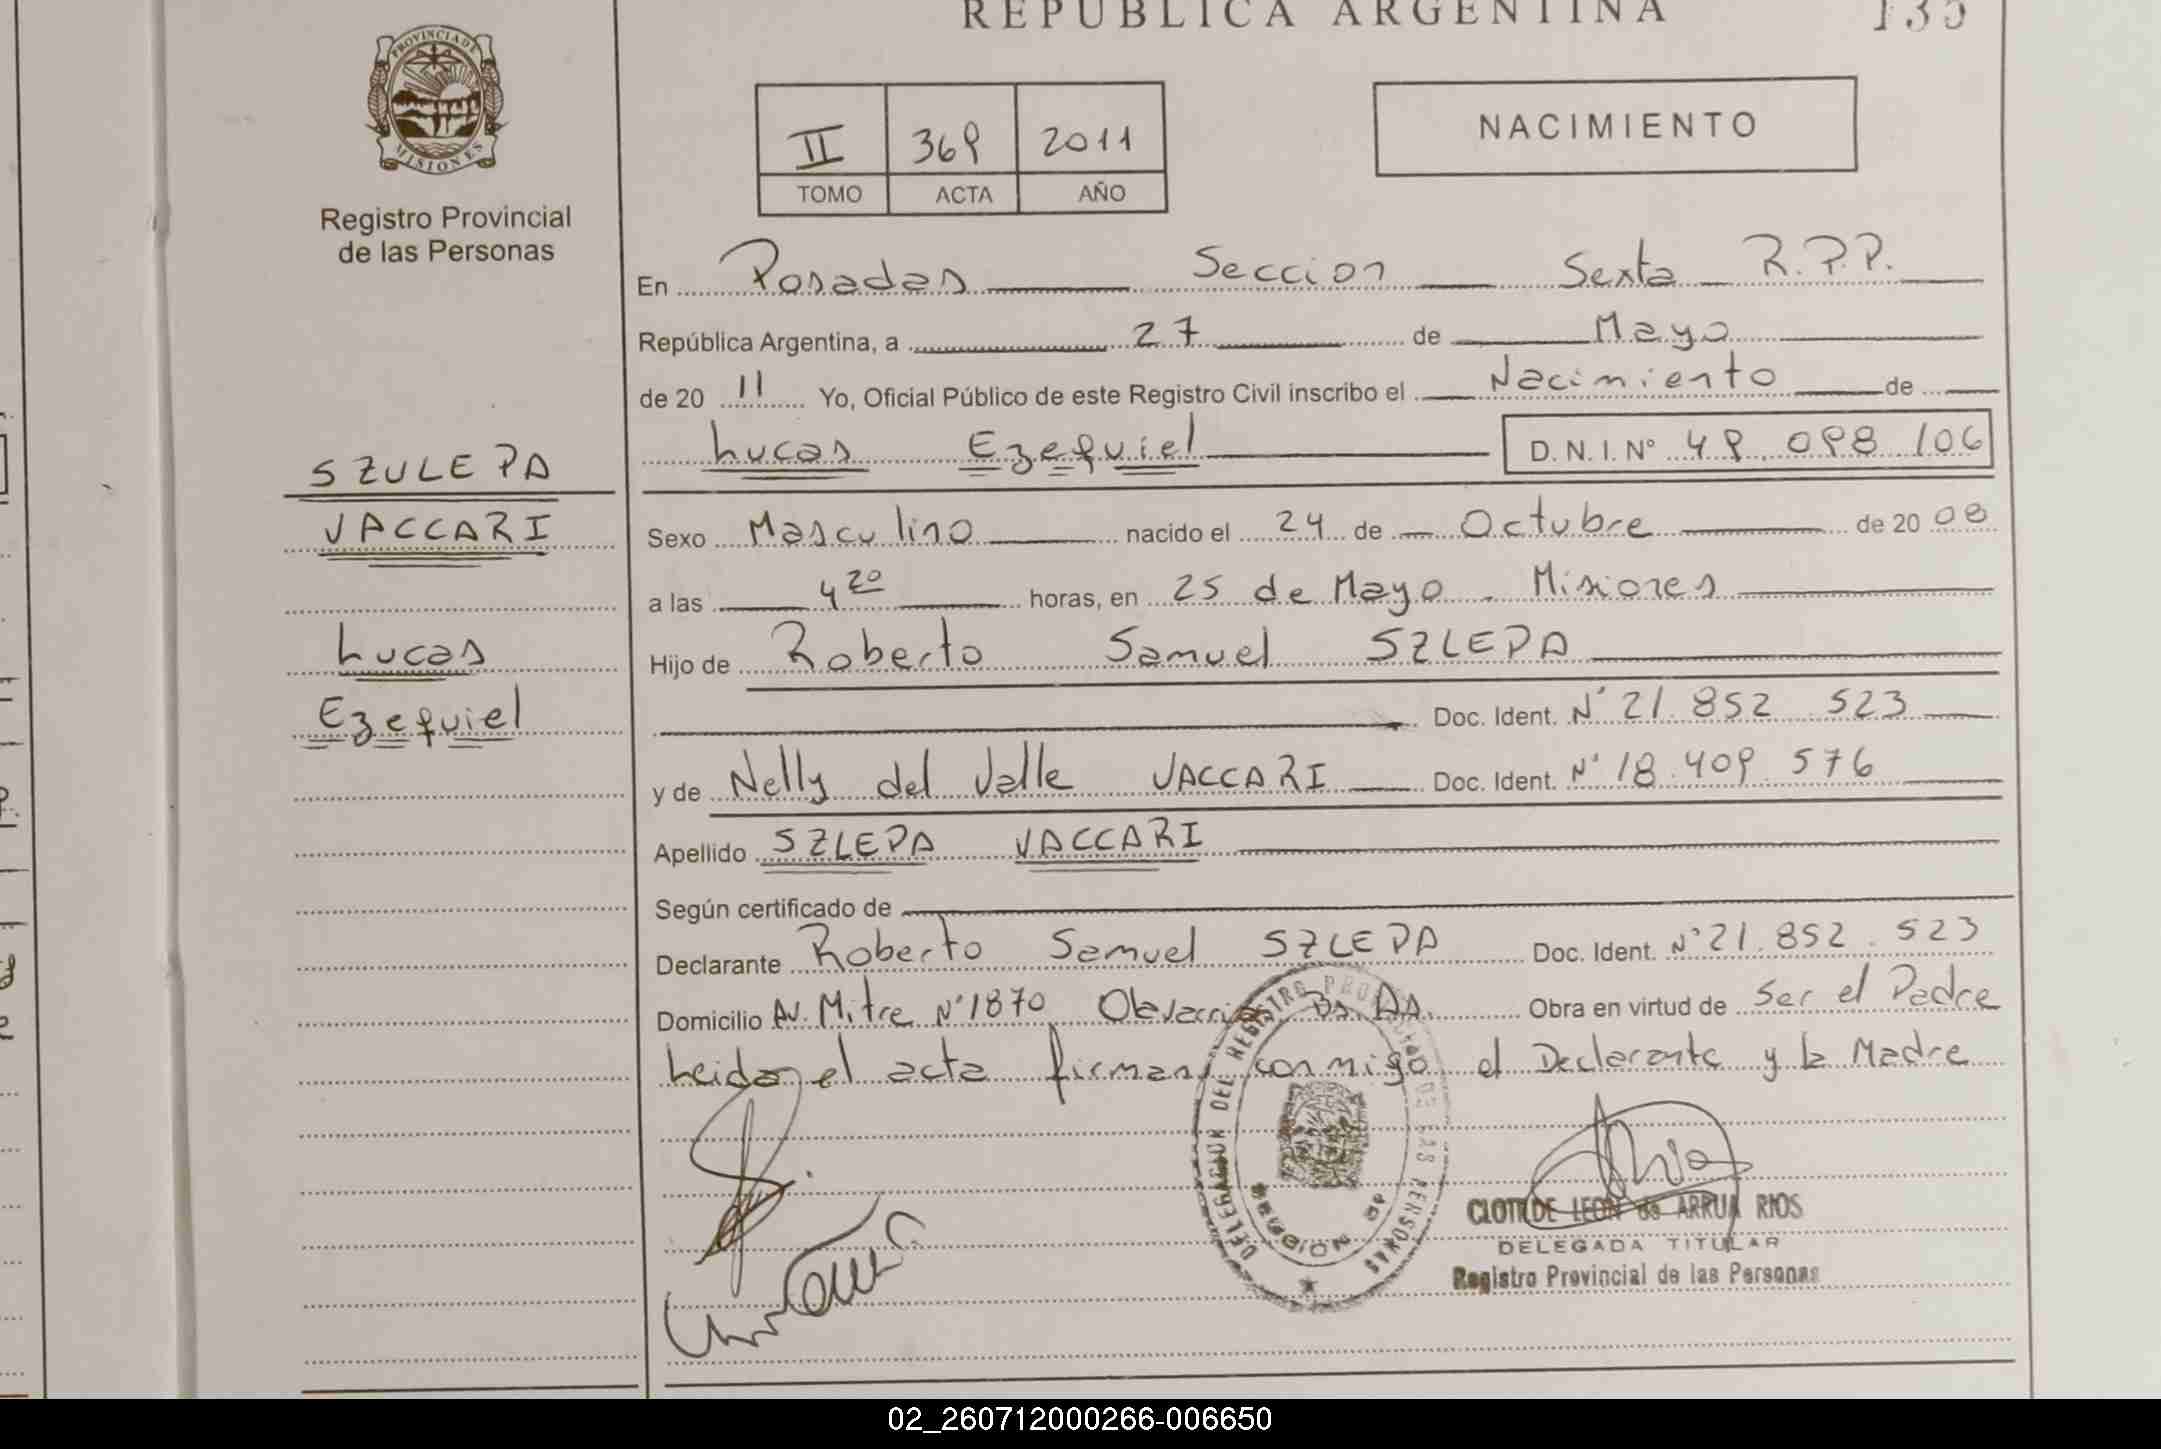 REPUBLICA ARGENTINA
135
PROVINCIA DE
MISIONES
Registro Provincial
de las Personas
II 369 2011
TOMO ACTA AÑO
NACIMIENTO
En Posadas Seccion Sexta R.P.P.
República Argentina, a 27 de Mayo
de 20 11 Yo, Oficial Público de este Registro Civil inscribo el Nacimiento de
Lucas Ezequiel D.N.I. Nº 49 098 106
SZULEPA
VACCARI
Lucas
Ezequiel
Sexo Masculino nacido el 24 de Octubre de 20 08
a las 4 20 horas, en 25 de Mayo - Misiones
Hijo de Roberto Samuel SZLEPA
Doc. Ident. Nº 21.852.523
y de Nelly del Valle VACCARI Doc. Ident. Nº 18.409.576
Apellido SZLEPA VACCARI
Según certificado de
Declarante Roberto Samuel SZLEPA Doc. Ident. Nº 21.852.523
Domicilio Av. Mitre Nº 1870 Olavarria Bs. As. Obra en virtud de Ser el Padre
Leida el acta firman conmigo el Declarante y la Madre
DELEGACION DEL REGISTRO PROVINCIAL DE LAS PERSONAS
CLOTILDE LEON de ARRUA RIOS
DELEGADA TITULAR
Registro Provincial de las Personas
02_260712000266-006650